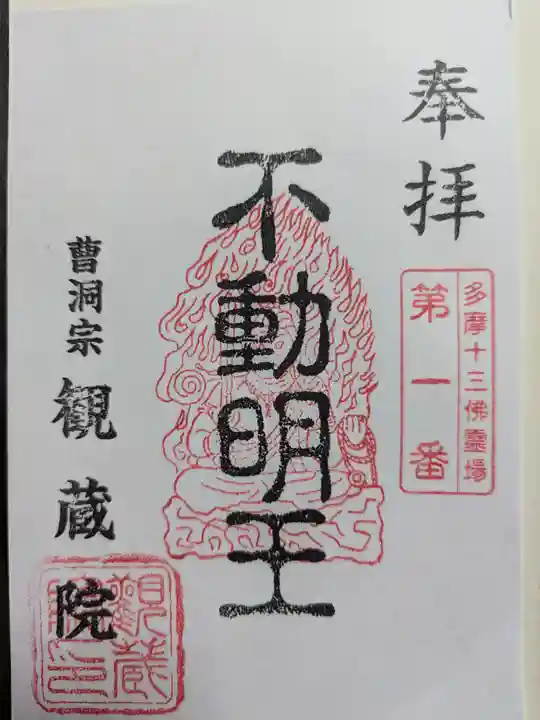 奉拝
多摩十三佛霊場
第一番
不動明王
曹洞宗 観蔵院
觀蔵院印